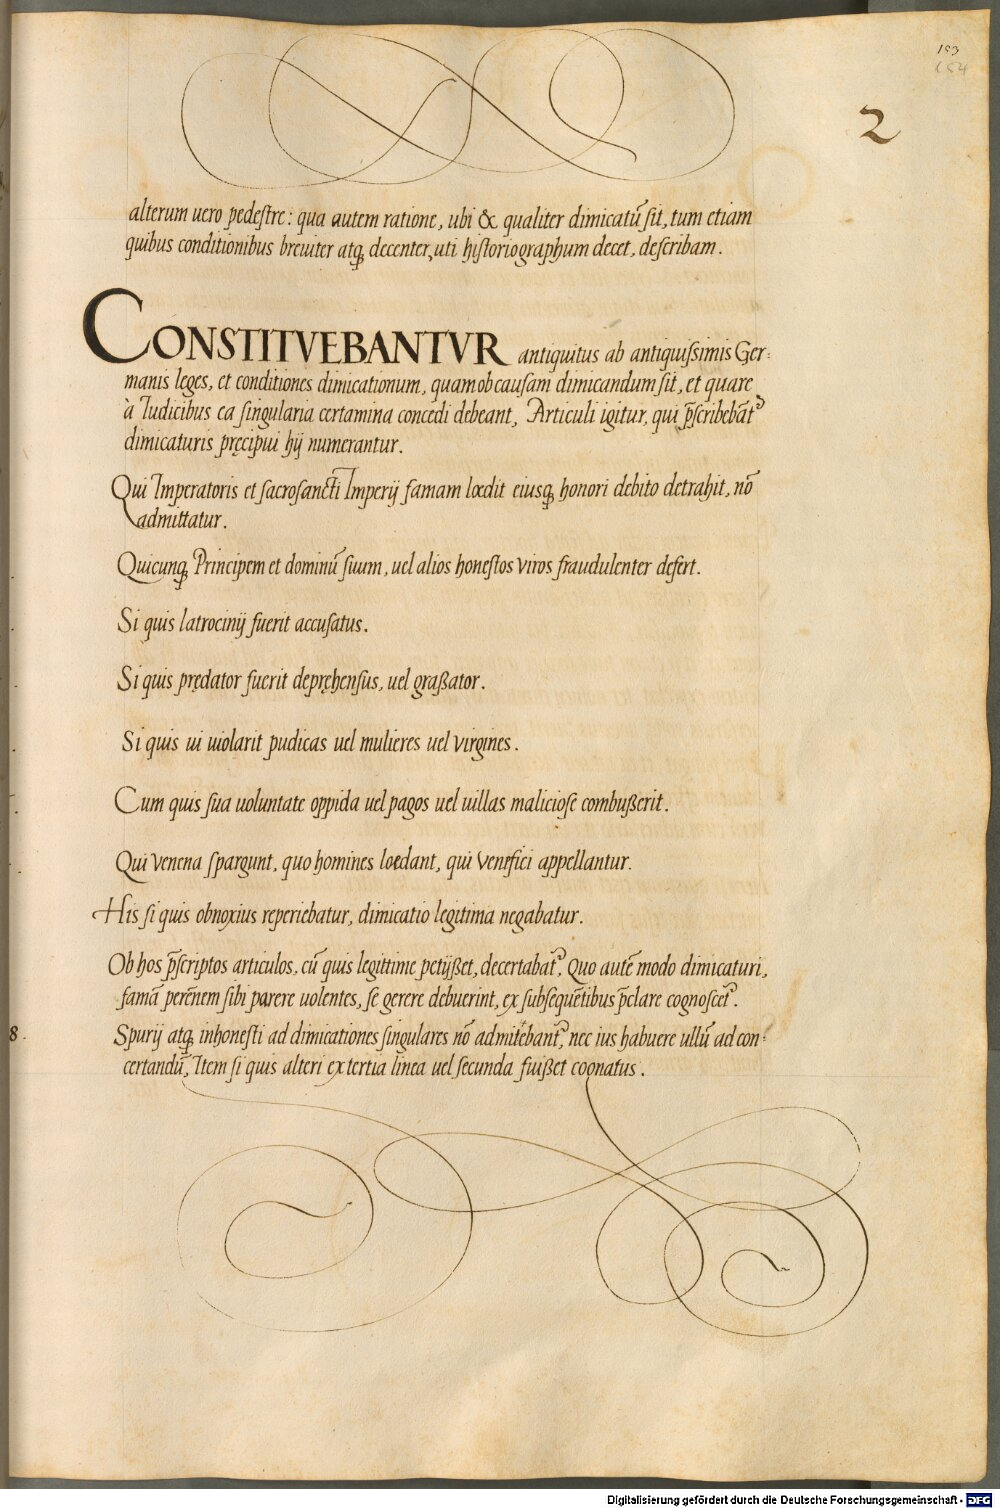 153
154
2
alterum uero pedestre: qua autem ratione, ubi & qualiter dimicatũ sit, tum etiam
quibus conditionibus breuiter atq̃ decenter, uti historiographum decet, describam.
CONSTITVEBANTVR antiquitus ab antiquissimis Ger:
manis leges, et conditiones dimicationum, quam ob causam dimicandum sit, et quare
à Iudicibus ea singularia certamina concedi debeant, Articuli igitur, qui p̃scribebãt᷒
dimicaturis pręcipui hij numerantur.
Qui Imperatoris et sacrosancti Imperij famam lœdit eiusq̃ honori debito detrahit, nõ
admittatur.
Quicunq̃ Principem et dominũ suum, uel alios honestos viros fraudulenter defert.
Si quis latrocinij fuerit accusatus.
Si quis prędator fuerit depręhensus, uel graßator.
Si quis ui uiolarit pudicas uel mulieres uel virgines.
Cum quis sua uoluntate oppida uel pagos uel uillas maliciose combußerit.
Qui venena spargunt, quo homines lœdant, qui venefici appellantur.
His si quis obnoxius reperiebatur, dimicatio legitima negabatur.
Ob hos p̃scriptos articulos, cũ quis legittime petijßet, decertabat᷒. Quo autẽ modo dimicaturi,
famã perẽnem sibi parere uolentes, se gerere debuerint, ex subsequẽtibus p̃clare cognoscet᷒.
Spurij atq̃ inhonesti ad dimicationes singulares nõ admitẽbant᷒, nec ius habuere ullũ ad con:
certandũ, Item si quis alteri ex tertia linea uel secunda fuißet cognatus.
8.
Digitalisierung gefördert durch die Deutsche Forschungsgemeinschaft - DFG